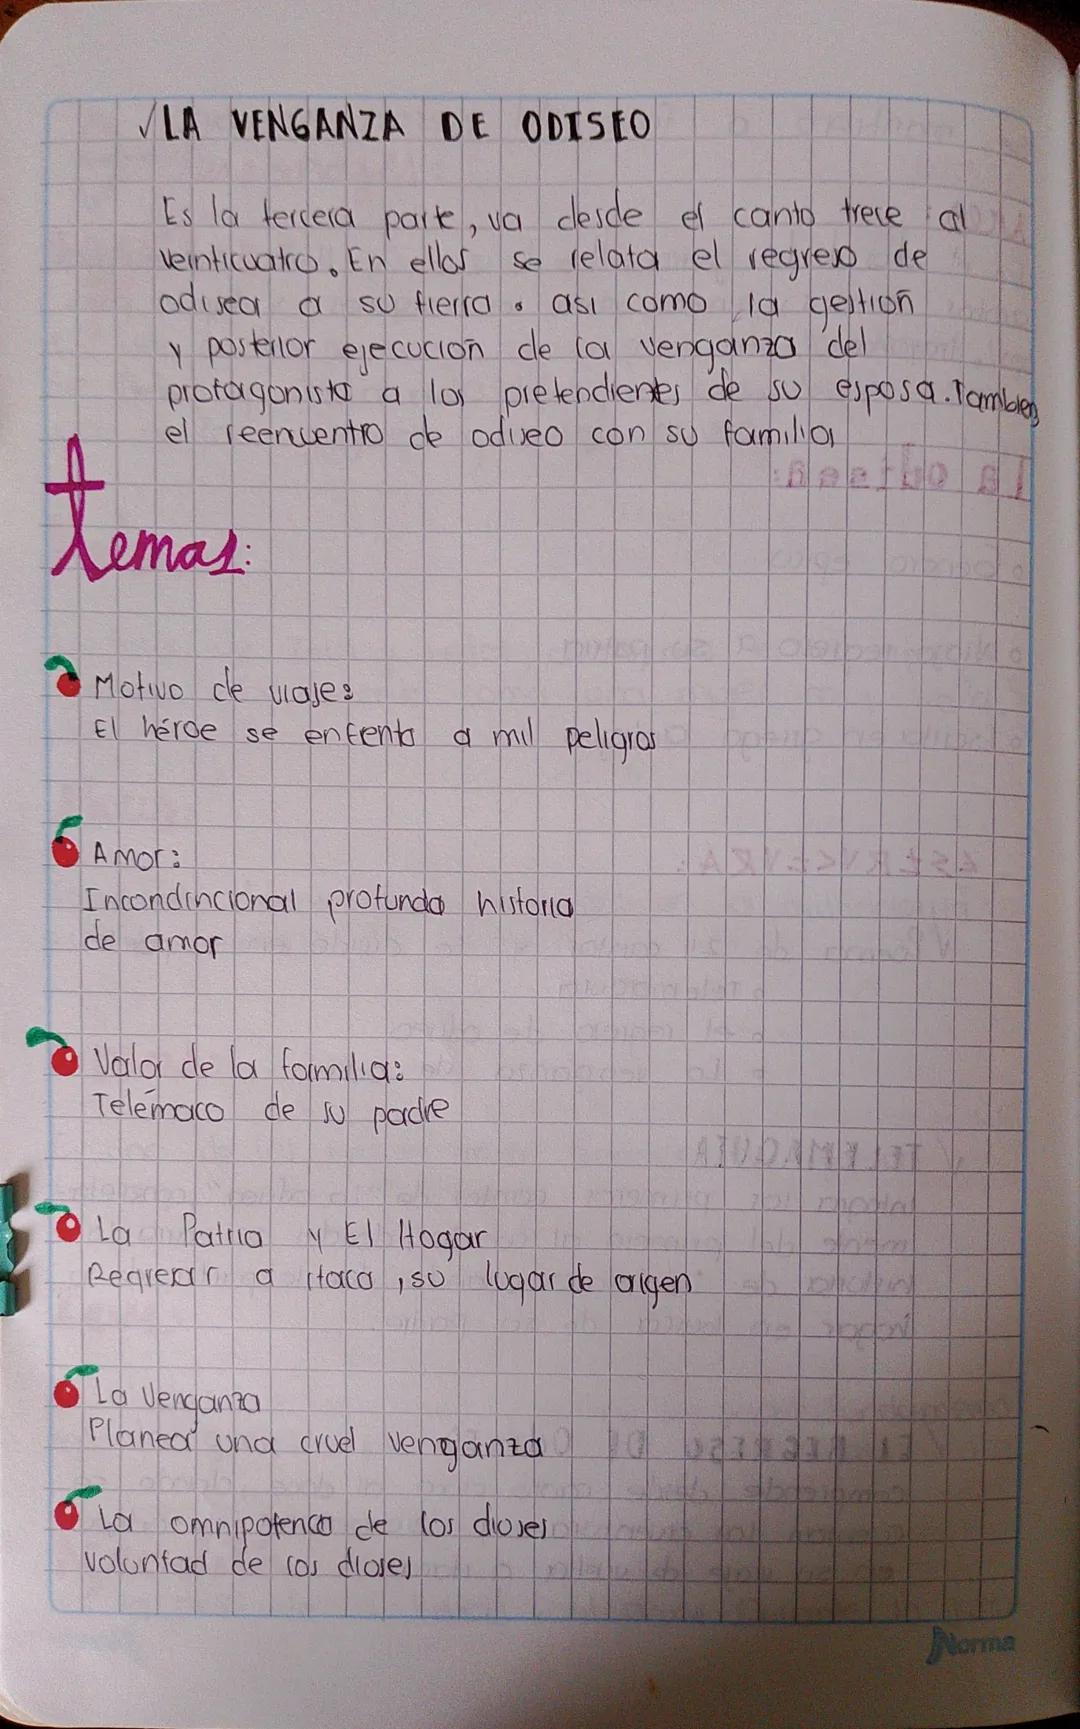 √LA VENGANZA DE ODISEO
Es la tercera parte, va desde el canto trece al
veinticuatro. En ellos se relata el regreso de
odisea a su tierra. asi como la gestion
y posterior ejecucion de la venganza del
protagonista a los pretendientes de su esposa. Tambien
el reencuentro de odiseo con su familia
temas:
Motivo de viajes
El héroe se enfenta a mil peligros
Amor:
Incondincional profunda historia
de amor
Valor de la familia:
Telemaco de su padre
La Patria y El Hogar
Regresar a itaca, su lugar de origen
La Venganza
Planea una cruel venganza
La omnipotenca de los dioses
voluntad de los dioses
Norma